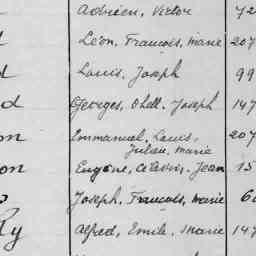 Adrien, Victor 72
Léon, François, Marie 207
Louis, Joseph 99
Georges, Joseph 147
Emmanuel, Louis, 207
Julien, Marie
Eugène, Jean 15
Joseph, François, Marie 6
Alfred, Emile, Marie 147